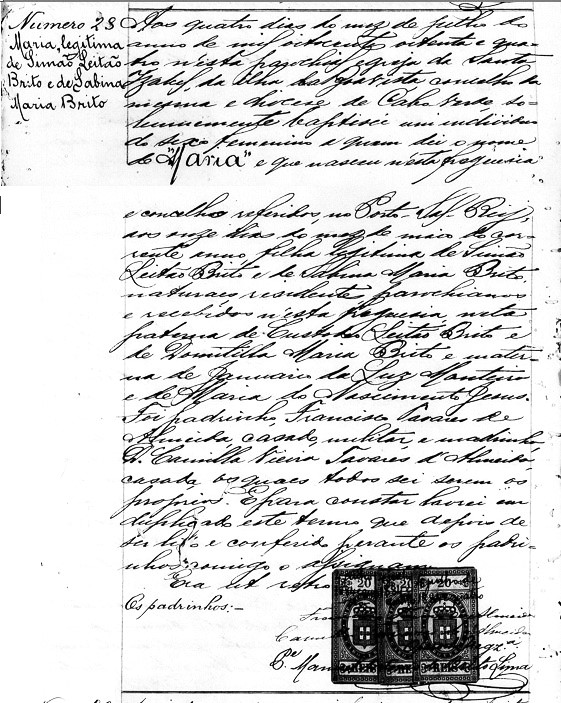 Numero 23
Maria, legitima
de Simão Leitão
Brito e de Sabina
Maria Brito
Aos quatro dias do mez de julho do
anno de mil oitocentos oitenta e qua-
tro n'esta parochial egreja de Santa
Izabel, da ilha da Boavista concelho da
mesma e diocese de Cabo Verde so-
lemnemente baptisei um individuo
do sexo femenino a quem dei o nome
de "Maria" e que nasceu n'esta freguesia
e concelho referidos, no Porto-Sal-Rei,
aos onze dias do mez de maio do cor-
rente anno, filha legitima de Simão
Leitão Brito e de Sabina Maria Brito,
naturaes residente, parochianos
e recebidos n'esta freguesia, neta
paterna de Custodio Leitão Brito e
de Domitilla Maria Brito e mater-
na de Januario da Luz Monteiro
e de Maria do Nascimento Jesus.
Foi padrinho, Francisco Tavares de
Almeida, casado, militar, e madrinha
D. Camilla Vieira Tavares d'Almeida
casada os quaes todos sei serem os
proprios. E para constar lavrei em
duplicado este termo que depois de
ser lido e conferido perante os padri-
nhos comigo o assignam
Era ut retro
Os padrinhos:-
20 20 20
Almeida
Almeida
REIS
Lima